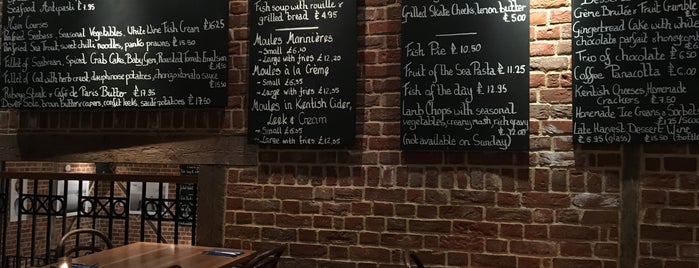 Seafood Antipasti £7.95
Main Courses
Panfried Seabass, Seasonal Vegetables, White Wine Fish Cream £16.25
Panfried Sea Trout, sweet chilli noodles, panko prawns £15.50
Fillet of Seabream, Spiced Crab Cake, Baby Gem, Roasted Tomato Emulsion
Fillet of Cod, with herb crust, dauphinoise potatoes, chorizo tomato sauce
Ribeye Steak & Café de Paris Butter £19.50
Dover Sole, brown butter, capers, confit leeks, sauté potatoes £19.50
Fish soup with rouille &
grilled bread £4.95
Moules Marinières
- Small £6.10
- Large with fries £12.20
Moules a la Crème
- Small £6.35
- Large with fries £12.70
Moules in Kentish Cider,
Leek & Cream
- Small
- Large with fries
Grilled Skate Cheeks, lemon butter
£5.00
Fish Pie £10.50
Fruit of the Sea Pasta £11.25
Fish of the day £12.95
Lamb Chops with seasonal
vegetables, creamy mash, rich gravy
£17.00
(not available on Sunday)
Desse
Crème Brulée
Fruit Crumble
Gingerbread Cake with white
chocolate parfait & honeycomb
Trio of chocolate £6.50
Coffee Panacotta
Kentish Cheeses, Homemade
Crackers £7.50
Homemade Ice Creams & Sorbets
Late Harvest Dessert Wine
£5.95 (glass)